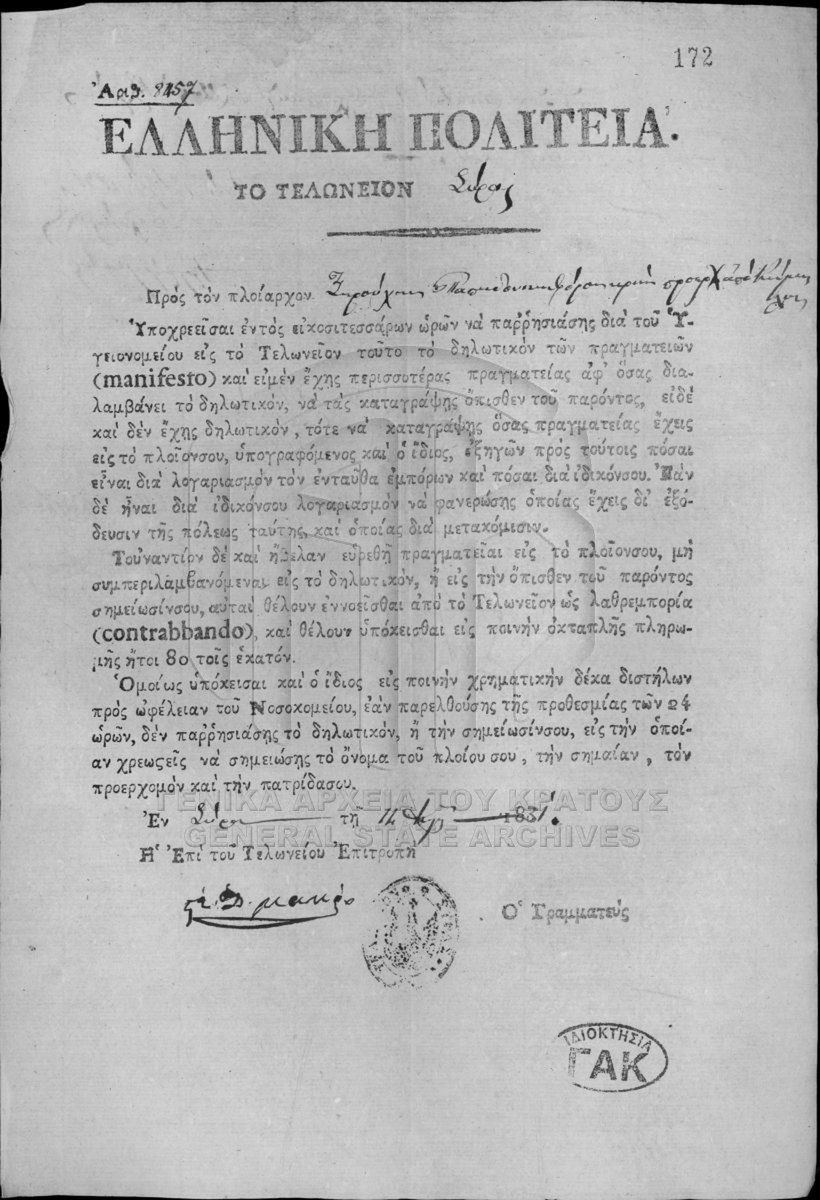 172
Ἀριθ. 8457
ΕΛΛΗΝΙΚΗ ΠΟΛΙΤΕΙΑ.
ΤΟ ΤΕΛΩΝΕΙΟΝ Σύρας
Πρὸς τὸν πλοίαρχον
Ὑποχρεεῖσαι ἐντὸς εἰκοσιτεσσάρων ὡρῶν νὰ παῤῥησιάσῃς διὰ τοῦ Ὑ-
γειονομείου εἰς τὸ Τελωνεῖον τοῦτο τὸ δηλωτικὸν τῶν πραγματειῶν
(manifesto) καὶ εἰμὲν ἔχῃς περισσυτέρας πραγματείας ἀφ' ὅσας δια-
λαμβάνει τὸ δηλωτικὸν, νὰ τὰς καταγράψῃς ὄπισθεν τοῦ παρόντος, εἰδὲ
καὶ δὲν ἔχῃς δηλωτικὸν, τότε νὰ καταγράψῃς ὅσας πραγματείας ἔχεις
εἰς τὸ πλοῖονσου, ὑπογραφόμενος καὶ ὁ ἴδιος, ἐξηγῶν πρὸς τούτοις πόσαι
εἶναι διὰ λογαριασμὸν τὸν ἐνταῦθα ἐμπόρων καὶ πόσαι διὰ ἰδικόνσου. Ἐὰν
δὲ ἦναι διὰ ἰδικόνσου λογαριασμὸν νὰ φανερώσῃς ὁποίας ἔχεις δι' ἐξό-
δευσιν τῆς πόλεως ταύτης, καὶ ὁποίας διὰ μετακόμισιν.
Τοὐναντίον δὲ καὶ ἤθελαν εὑρεθῆ πραγματεῖαι εἰς τὸ πλοῖονσου, μὴ
συμπεριλαμβανόμεναι εἰς τὸ δηλωτικὸν, ἢ εἰς τὴν ὄπισθεν τοῦ παρόντος
σημείωσίνσου, αὐταὶ θέλουν ἐννοεῖσθαι ἀπὸ τὸ Τελωνεῖον ὡς λαθρεμπορία
(contrabbando), καὶ θέλουν ὑπόκεισθαι εἰς ποινὴν ὀκταπλῆς πληρω-
μῆς ἤτοι 80 τοῖς ἑκατόν.
Ὁμοίως ὑπόκεισαι καὶ ὁ ἴδιος εἰς ποινὴν χρηματικὴν δέκα διστήλων
πρὸς ὠφέλειαν τοῦ Νοσοκομείου, ἐὰν παρελθούσης τῆς προθεσμίας τῶν 24
ὡρῶν, δὲν παῤῥησιάσῃς τὸ δηλωτικὸν, ἢ τὴν σημείωσίνσου, εἰς τὴν ὁποί-
αν χρεωςεῖς νὰ σημειώσῃς τὸ ὄνομα τοῦ πλοίου σου, τὴν σημαίαν, τὸν
προερχομὸν καὶ τὴν πατρίδασου.
ΓΕΝΙΚΑ ΑΡΧΕΙΑ ΤΟΥ ΚΡΑΤΟΥΣ
Ἐν Σύρα τῇ 1831.
GENERAL STATE ARCHIVES
Ἡ Ἐπὶ τοῦ Τελωνείου Ἐπιτροπὴ
Ὁ Γραμματεύς
ΙΔΙΟΚΤΗΣΙΑ
ΓΑΚ